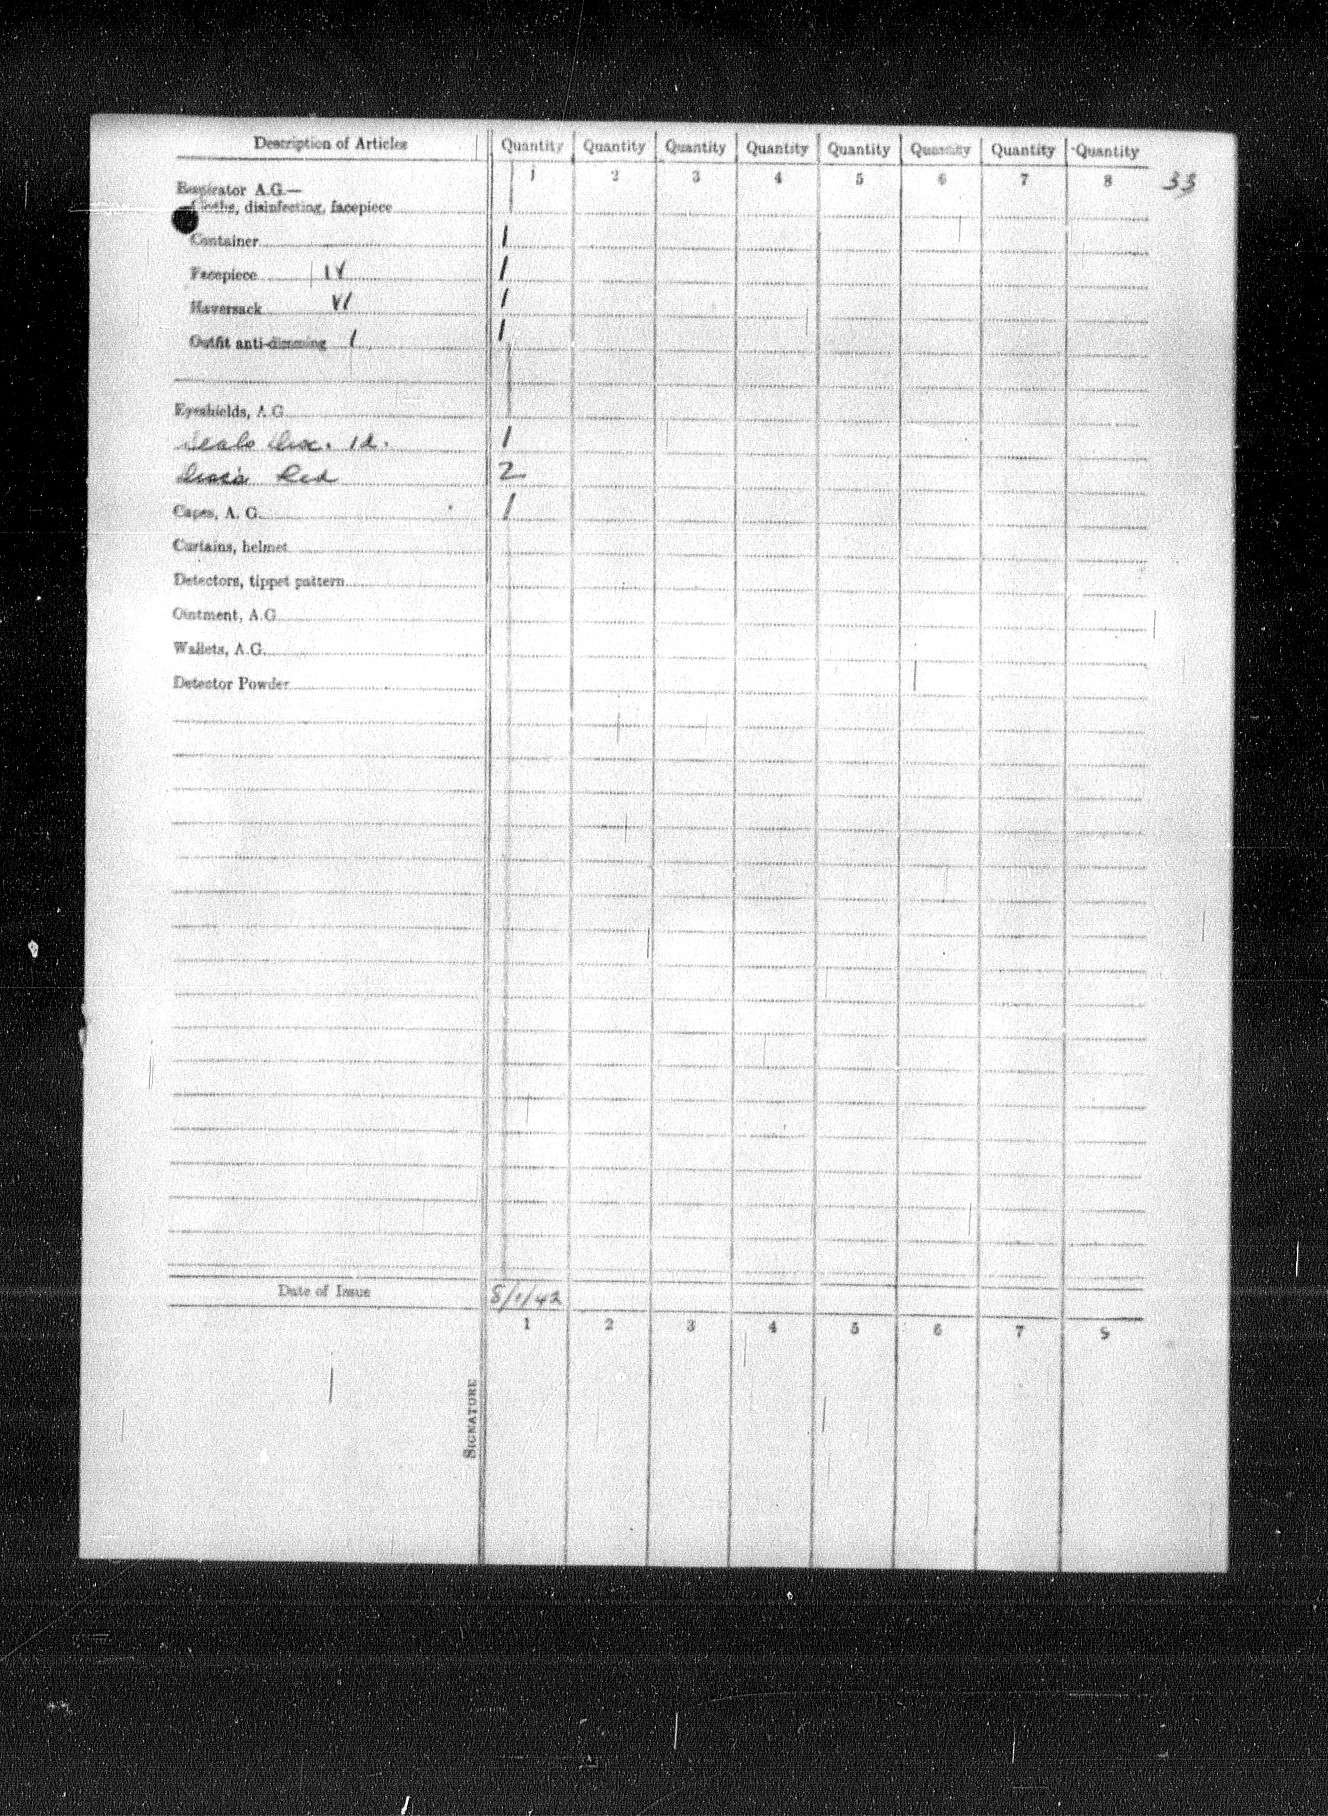 Description of Articles Quantity Quantity Quantity Quantity Quantity Quantity Quantity Quantity
1 2 3 4 5 6 7 8 33
Respirator A.G.—
Cloths, disinfecting, facepiece
Container 1
Facepiece IV 1
Haversack VI 1
Outfit anti-dimming 1 1
Eyeshields, A.G.
Disc. Id. 1
Red 2
Capes, A. G. 1
Curtains, helmet
Detectors, tippet pattern
Ointment, A.G.
Wallets, A.G.
Detector Powder
Date of Issue 8/1/42
1 2 3 4 5 6 7 8
SIGNATURE